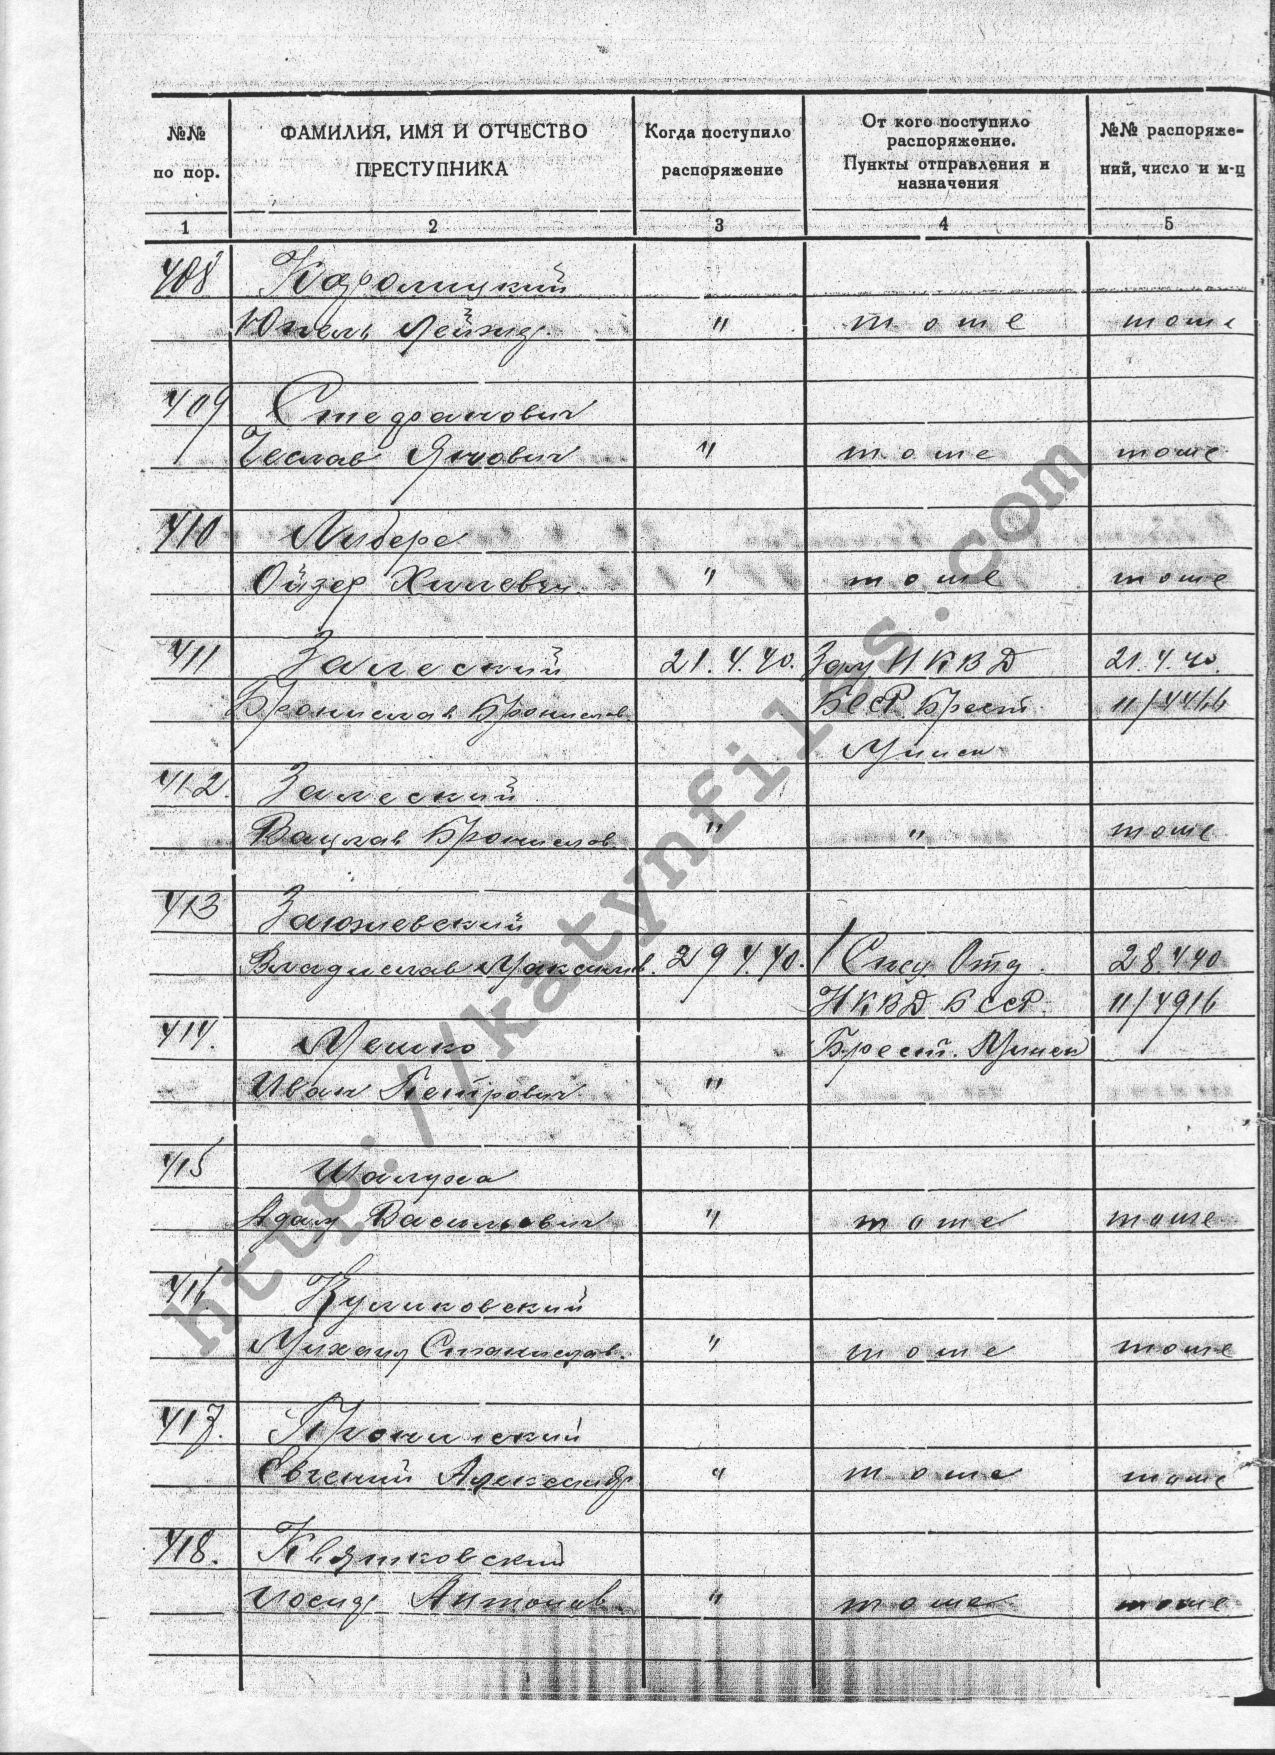 №№ по пор.
ФАМИЛИЯ, ИМЯ И ОТЧЕСТВО ПРЕСТУПНИКА
Когда поступило распоряжение
От кого поступило распоряжение. Пункты отправления и назначения
№№ распоряжений, число и м-ц
1 2 3 4 5
408 Каролицкий
Юдель Лейзер. " то же то же
409 Стефанович
Чеслав Янович " то же то же
410 Либере
Ойзер Хилевич. " то же то же
411 Залеский 21.4.40. Зам НКВД 21.4.40.
Бронислав Бронислав. БССР. Брест 11/4466
Минск
412. Залеский
Вацлав Бронислов. " " то же
413 Заюнчевский
Владислав Максимов. 29 4.40. Спец. Отд. 28.4.40
НКВД БССР. 11/4916
414. Мешко Брест. Минск
Иван Петрович "
415 Шалуха
Адам Васильевич " то же то же
416 Куликовский
Михаил Станислав. " то же то же
417. Пронский
Евгений Александр " то же то же
418. Квятковский
Иосиф Антонов. " то же то же
http://katynfiles.com